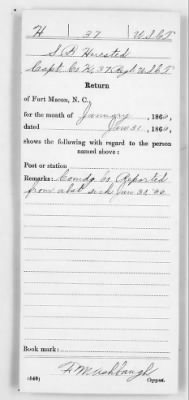 H 37 U.S.C.T.
S. B. Husted
Capt. Co. K, 37 Regt U.S.C.T.
Return
of Fort Macon, N. C.,
for the month of January, 1866,
dated Jan 31, 1866,
shows the following with regard to the person
named above:
Post or station
Remarks: Comdg Co. Reported
from abst sick Jan 22, 66.
Book mark:
F. M. Ashbaugh
(646) Copyist.